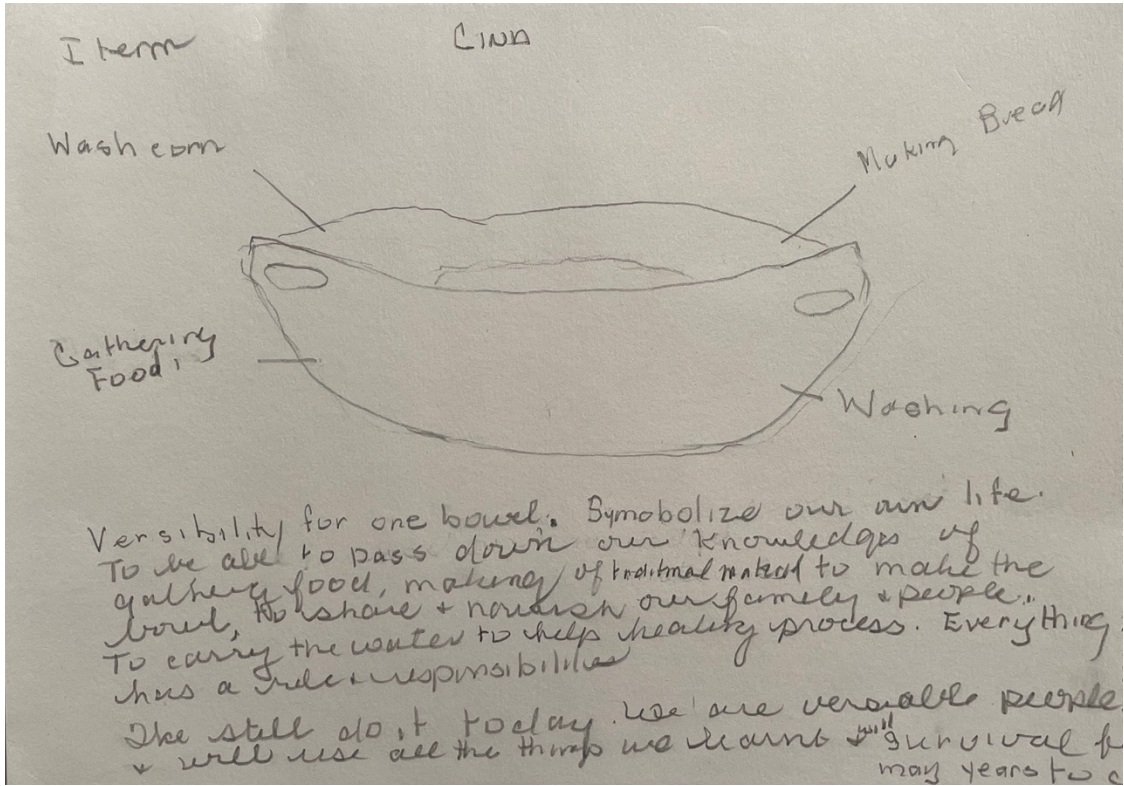 Item
Cinn
Wash corn
Making Bread
Gathering
Food,
Washing
Versibility for one bowel. Symobolize our own life.
To be able to pass down our knowledges of
gathery food, making of traditinal material to make the
bowl, to share + nourish our family + people.
To carry the water to help healing process. Everything
has a role + responsibilities
still do it today. We are versable people
+ will use all the things we learnt + will survival f
may years to c